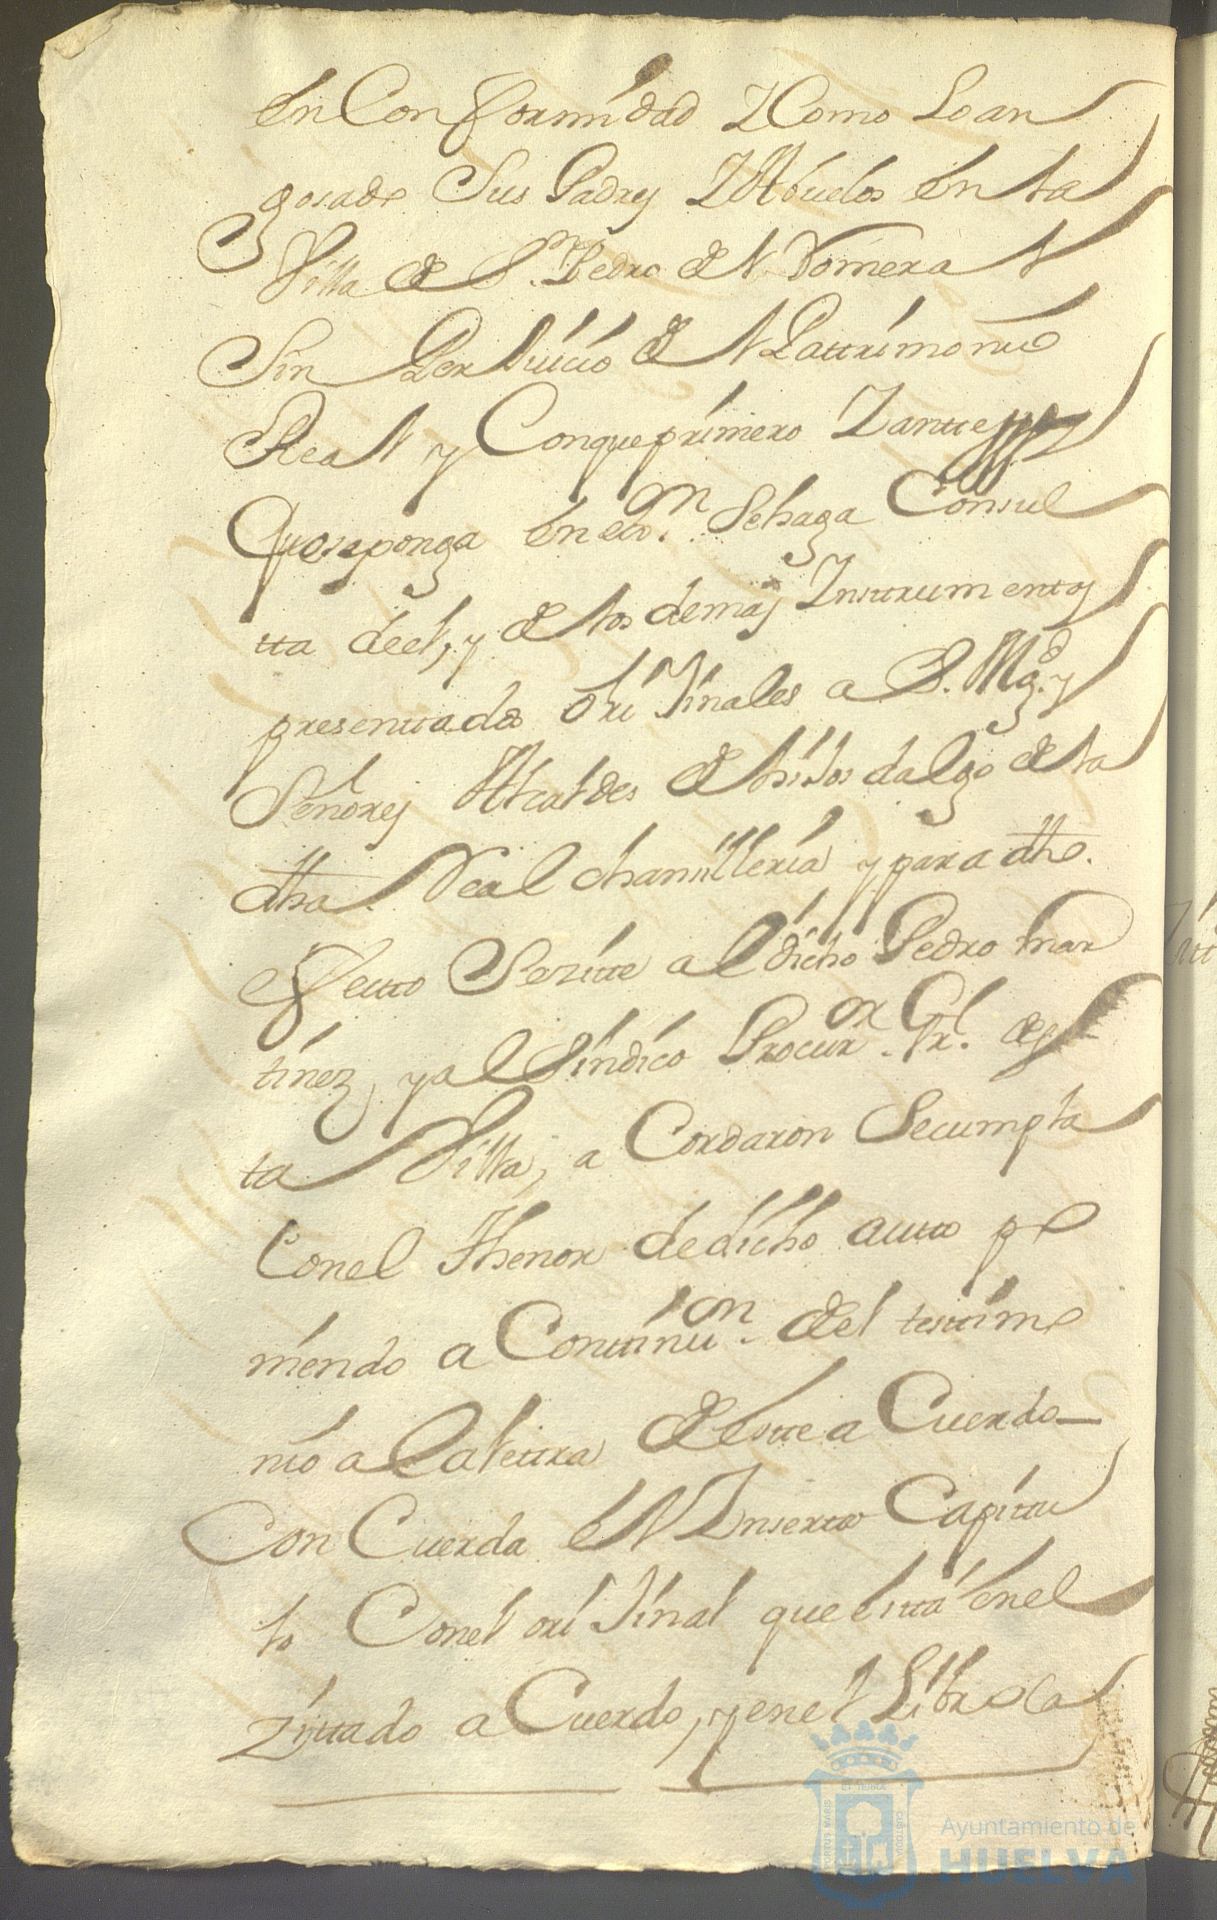 en Conformidad YComo Loan
gosado Sus Padres YAbuelos en la
Villa de Sn. Pedro del Romeral
Sin Perjuicio del Pattrimonio
Real y Conqueprimero Yantte
Quesseponga en exn. Sehaga Consul
tta deel, y de los demas Ynsttrumentos
presenttados oriJinales a S. Magd. y
Señores Alcaldes de hiJos dalgo de la
dha. Real chanzilleria y para dho.
efectto Sezitte al dicho Pedro Mar
tinez, y al Sindico Procuror. Grl. des
ta Villa, a Cordaron Secumpla
Conel Thenor dedicho autto po
niendo a Conttinuon. del testtimo
nio a la lettra de estte a Cuerdo
Con Cuerda el Ynsertto Capittu
lo Conel oriJinal que esttá enel
Zittado a Cuerdo, y enel Libro Ca
Ayuntamiento de
HUELVA